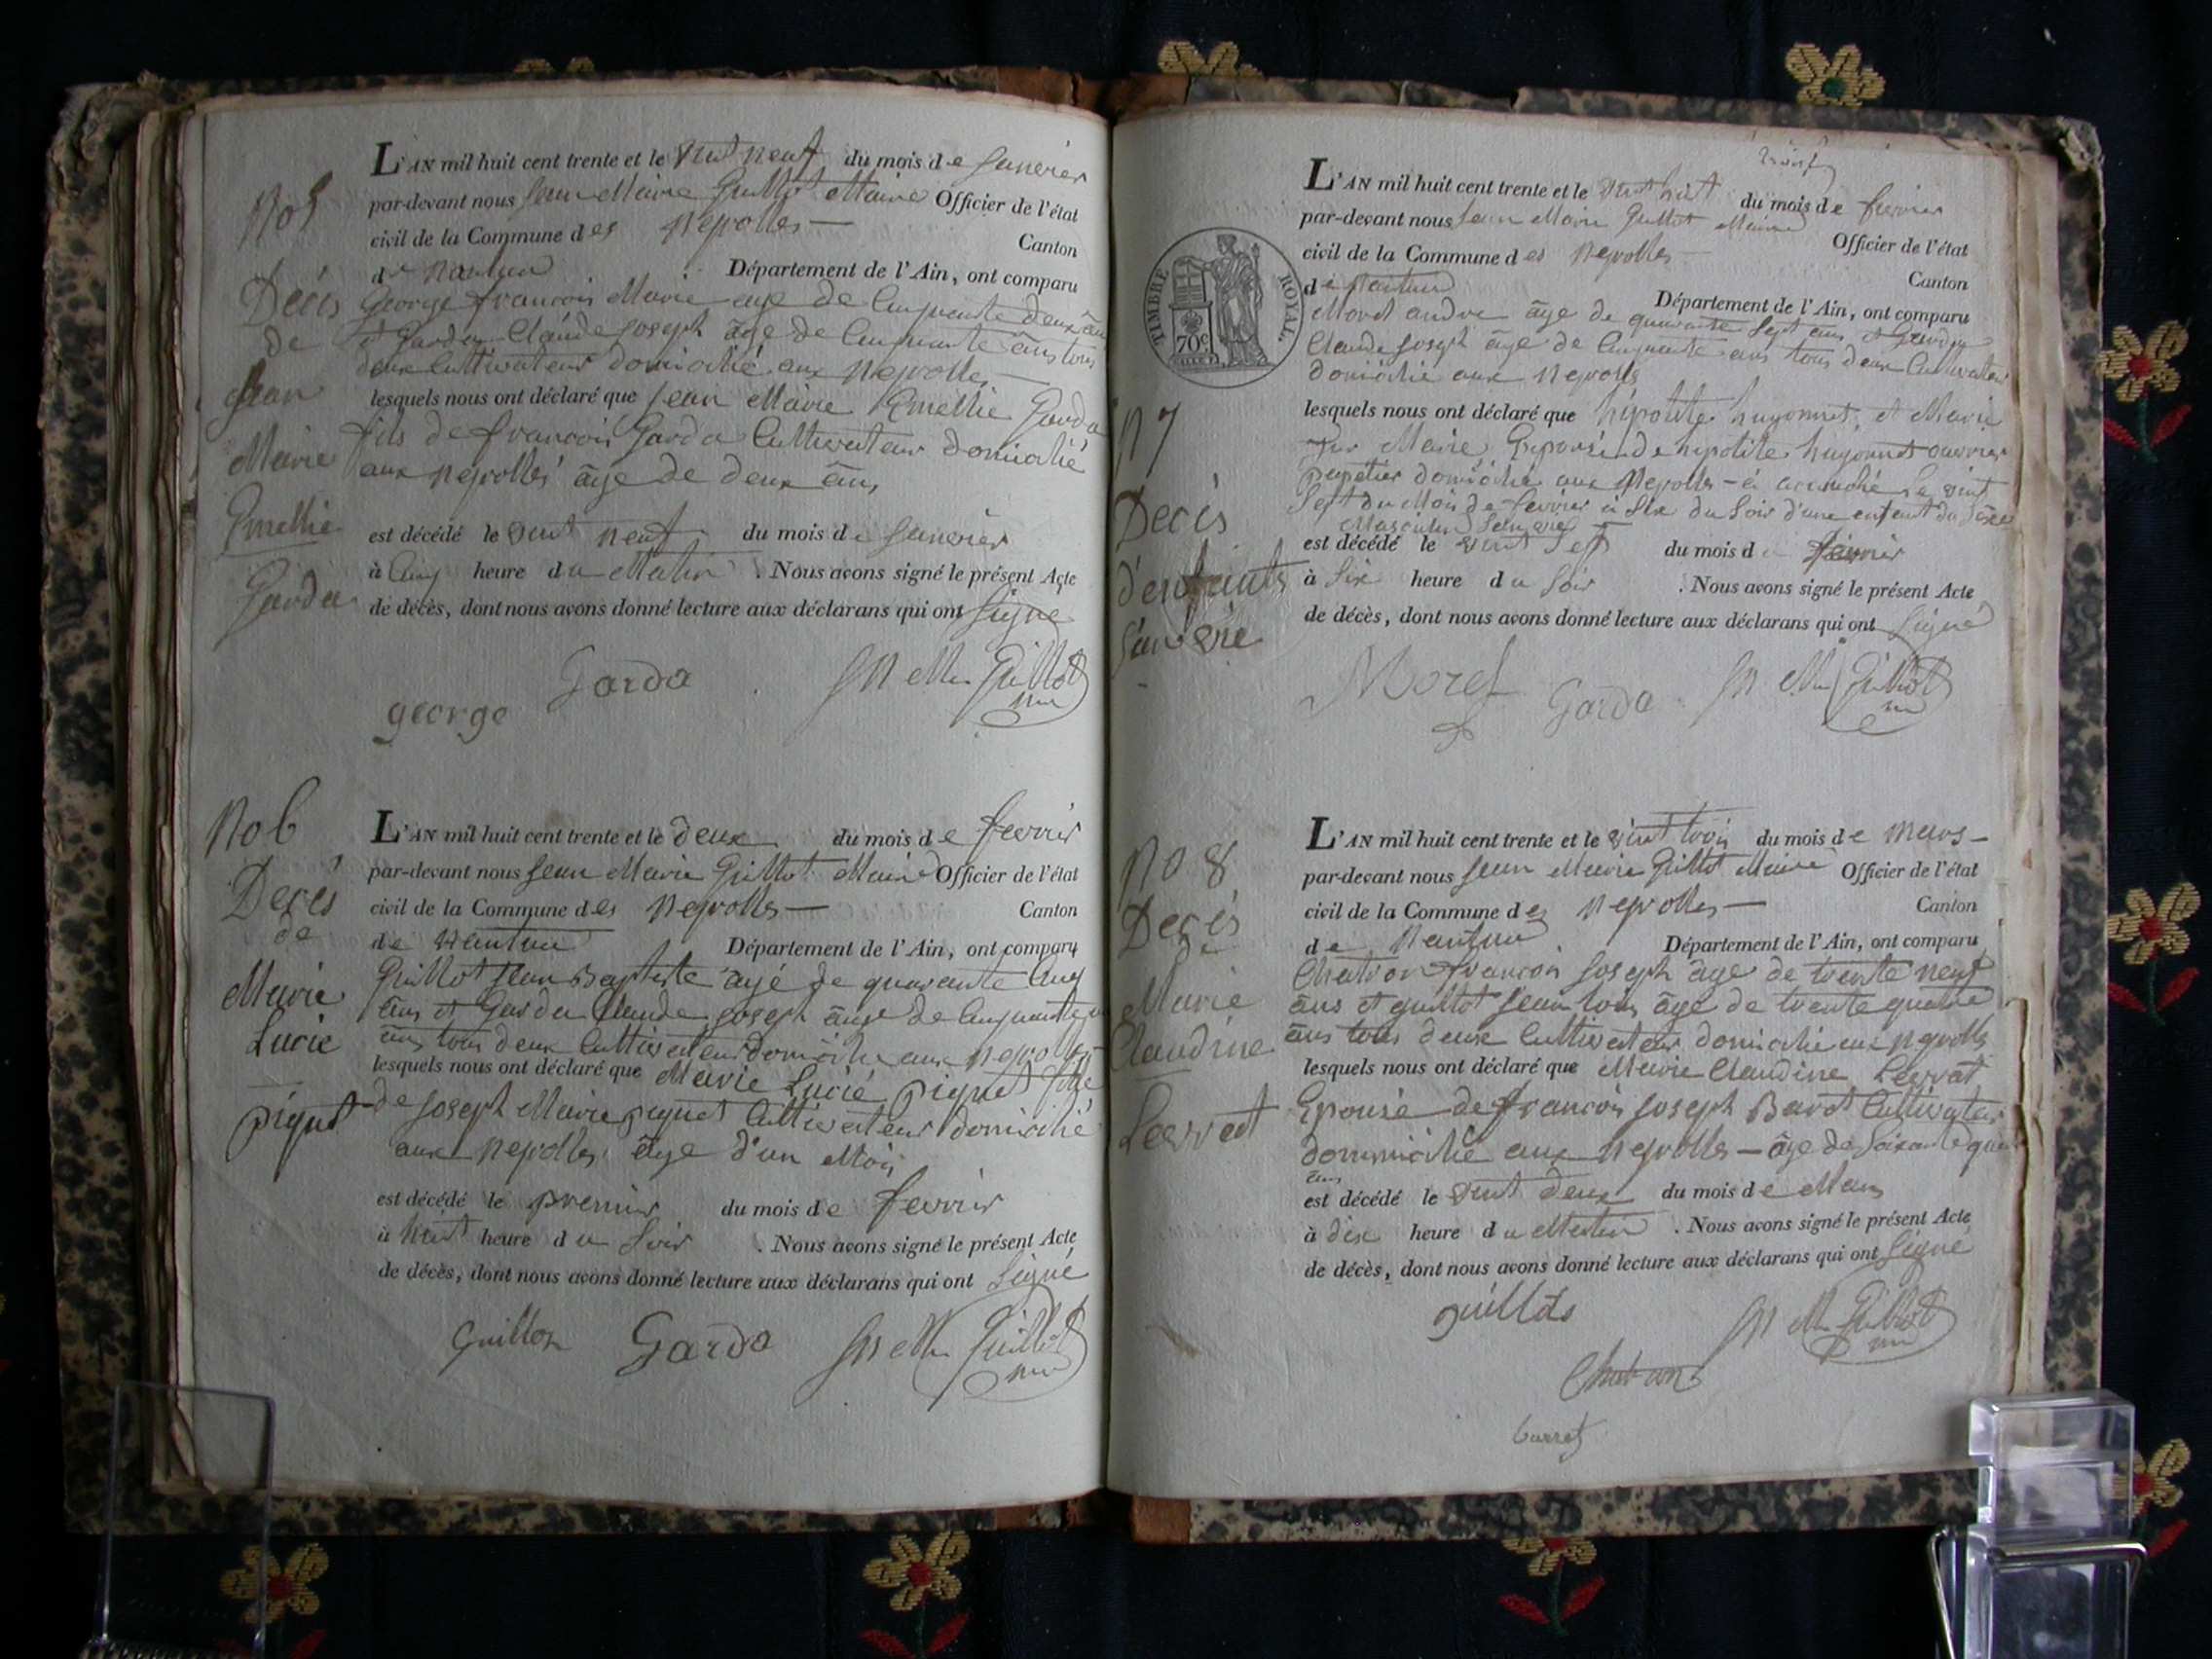 No 5
Décès
de
Jean
Marie
Emellie
Garda
L'AN mil huit cent trente et le vint neuf du mois de Janvier
par-devant nous Jean Marie Guillot Maire Officier de l'état
civil de la Commune des Neyrolles — Canton
de Nantua Département de l'Ain, ont comparu
George francois Marie age de Cinquante deux ans
et Garda Claude Joseph âge de Cinquante âns tous
deux Cultivateur domicilié aux Neyrolles —
lesquels nous ont déclaré que Jean Marie Emellie Garda
fils de francois Garda Cultivateur domicilié
aux Neyrolles âge de deux âns
est décédé le vint neuf du mois de Janvier
à Cinq heure du Matin . Nous avons signé le présent Acte
de décès, dont nous avons donné lecture aux déclarans qui ont Signé
Garda
JN M Guillot
george
No 6
Décés
de
Marie
Lucie
piquet
L'AN mil huit cent trente et le deux du mois de fevrier
par-devant nous Jean Marie Guillot Maire Officier de l'état
civil de la Commune des Neyrolles — Canton
de Nantua Département de l'Ain, ont comparu
Guillot Jean Baptiste âgé de quarante Cinq
âns et Garda Claude Joseph âuge de Cinquante
âns tous deux Cultivateur domicilie aux Neyrolles
lesquels nous ont déclaré que Marie Lucié piquet fille
de Joseph Marie piquet Cultivateur domicilié
aux Neyrolles âge d'un Mois
est décédé le premier du mois de fevrier
à huit heure du Soir . Nous avons signé le présent Acte
de décès, dont nous avons donné lecture aux déclarans qui ont Signé
Guillot Garda JN M Guillot
TIMBRE ROYAL.
70c
N 7
Décés
d'enfants
san vie
L'AN mil huit cent trente et le vint huit du mois de fevrier
par-devant nous Jean Marie Guillot Maire Officier de l'état
civil de la Commune des Neyrolles — Canton
de Nantua Département de l'Ain, ont comparu
Moret andre âge de quarante Sept âns et Garda
Claude Joseph âge de Cinquante ans tous deux Cultivateur
domicilié aux Neyrolles
lesquels nous ont déclaré que hipolite hugonnet, et Marie
Marie Epouse de hipolite hugonnet ouvrier
papetier domicilié aux Neyrolles — a accouché le vint
Sept du Mois de fevrier à Six du Soir d'une enfant du Sexe
Masculin San vie
est décédé le vint Sept du mois de fevrier
à Six heure du Soir . Nous avons signé le présent Acte
de décès, dont nous avons donné lecture aux déclarans qui ont Signé
Moret Garda JN M Guillot
No 8
Decés
de
Marie
Claudine
Levrat
L'AN mil huit cent trente et le vint trois du mois de Mars —
par-devant nous Jean Marie Guillot Maire Officier de l'état
civil de la Commune des Neyrolles — Canton
de Nantua Département de l'Ain, ont comparu
Chatron francois Joseph âge de trente neuf
âns et guillot Jean âge de trente quatre
âns tous deux Cultivateur domicilie aux Neyrolles
lesquels nous ont déclaré que Marie Claudine Levrat
Epouse de francois Joseph Barot Cultivateur
dommicilié aux Neyrolles — âge de Soixante
âns
est décédé le vint deux du mois de Mars
à dix heure du Matin . Nous avons signé le présent Acte
de décès, dont nous avons donné lecture aux déclarans qui ont Signé
guillot JN M Guillot
Chatron